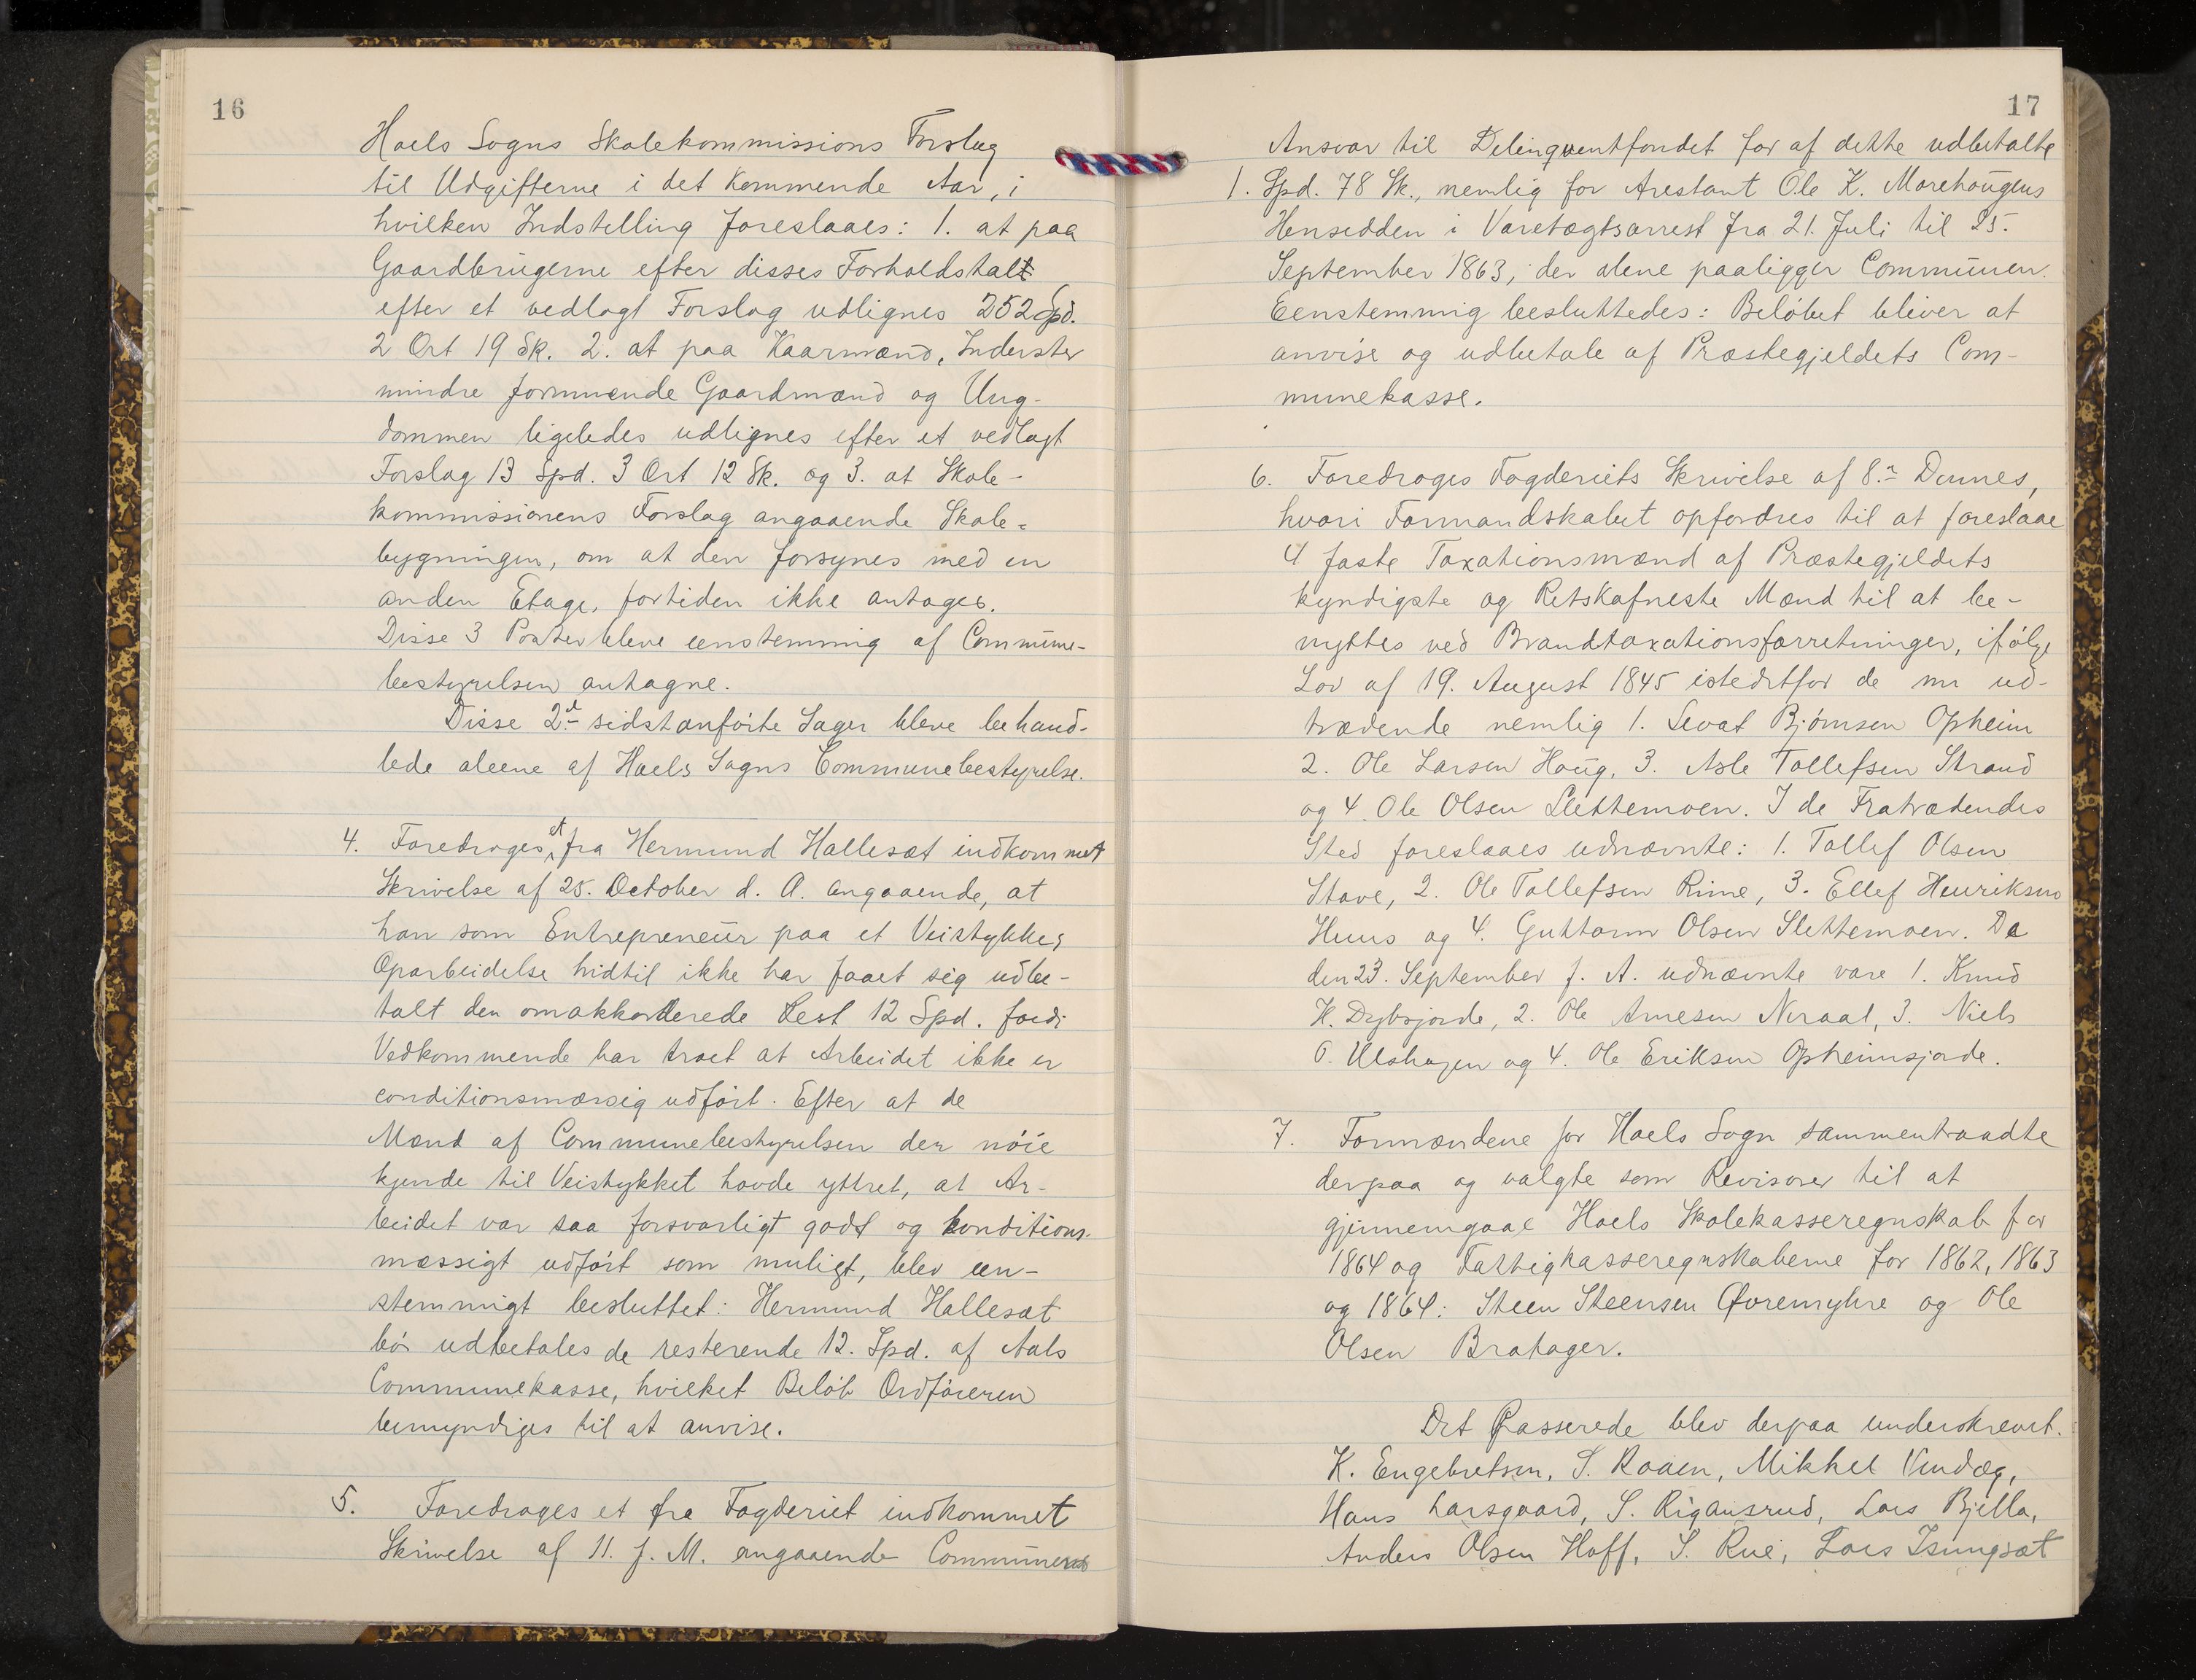 16
Hoels Sogns Skolekommissions Forslag
til Udgifterne i det kommende Aar, i
hvilken Indstilling foreslaaes: 1. at paa
Gaardbrugerne efter disses Forholdstal
efter et vedlagt Forslag udlignes 252 Spd.
2 Ort 19 Sk. 2. at paa Kaarmænd, Inderster
mindre formuende Gaardmænd og Ung-
dommen ligeledes udlignes efter et vedlagt
Forslag 13 Spd. 3 Ort 12 Sk. og 3. at Skole-
kommissionens Forslag angaaende Skole-
bygningen, om at den forsynes med en
anden Etage, fortiden ikke antages.
Disse 3 Poster bleve eenstemmig af Commune-
bestyrelsen antagne.
Disse 2de sidstanførte Sager bleve behand-
lede aleene af Hoels Sogns Communebestyrelse.
4. Foredroges et fra Hermund Hallesæt indkommet
Skrivelse af 25. October d. A. angaaende, at
han som Entrepreneur paa et Veistykkes
Oparbeidelse hidtil ikke har faaet sig udbe-
talt den omakkorderede Rest 12 Spd. fordi
Vedkommende har troet at Arbeidet ikke er
conditionsmæssig udført. Efter at de
Mænd af Communebestyrelsen der nøie
kjende til Veistykket havde yttret, at Ar-
beidet var saa forsvarligt godt og konditions-
mæssigt udført som muligt, blev een-
stemmigt besluttet: Hermund Hallesæt
bør udbetales de resterende 12. Spd. af Aals
Communekasse, hvilket Beløb Ordføreren
bemyndiges til at anvise.
5. Foredroges et fra Fogderiet indkommet
Skrivelse af 11. f. M. angaaende Communens
17
Ansvar til Delinquentfondet for af dette udbetalte
1. Spd. 78 Sk., nemlig for Arestant Ole K. Morehougens
Hensidden i Varetægtsarrest fra 21. Juli til 25.
September 1863, der alene paaligger Communen.
Eenstemmig besluttedes: Beløbet bliver at
anvise og udbetale af Præstegjeldets Com-
munekasse.
6. Foredroges Fogderiets Skrivelse af 8. Dennes,
hvori Formandskabet opfordres til at foreslaae
4 faste Taxationsmænd af Præstegjeldets
kyndigste og Retskafneste Mænd til at be-
nyttes ved Brandtaxationsforretninger, ifølge
Lov af 19. August 1845 istedetfor de nu ud-
trædende nemlig 1. Sevat Bjørnsen Opheim
2. Ole Larsen Houg, 3. Asle Tollefsen Strand
og 4. Ole Olsen Slettemoen. I de Fratrædendes
Sted foreslaaes udnævnte: 1. Tollef Olsen
Stave, 2. Ole Tollefsen Rime, 3. Ellef Henriksens
Huus og 4. Guttorm Olsen Slettemoen. De
den 23. September f. A. udnævnte vare 1. Knud
H. Dybsjorde, 2. Ole Arnesen Noraal, 3. Niels
O. Ulshagen og 4. Ole Eriksen Opheimsjorde.
7. Formændene for Hoels Sogn sammentraadte
derpaa og valgte som Revisorer til at
gjennemgaae Hoels Skolekasseregnskab for
1864 og Fattigkasseregnskaberne for 1862, 1863
og 1864: Steen Steensen Øvremyhre og Ole
Olsen Bratager.
Det Passerede blev derpaa underskrevet.
K. Engebretsen, S. Roaen, Mikkel Vindæg,
Hans Larsgaard, S. Rigansrud, Lars Bjella,
Anders Olsen Hoff, S. Rue, Lars Isungsæt